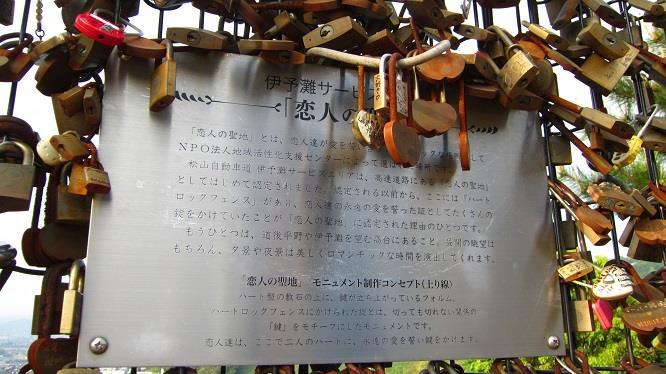 伊予灘サービス
「恋人の
「恋人の聖地」とは、恋人達が愛を誓い
NPO法人地域活性化支援センターによって選ば
松山自動車道 伊予灘サービスエリアは、高速道路にある「恋人の聖地」
としてはじめて認定されました。認定される以前から、ここには「ハート
ロックフェンス」があり、恋人達の永遠の愛を誓った証としてたくさんの
錠をかけていたことが「恋人の聖地」に認定された理由のひとつです。
もうひとつは、道後平野や伊予灘を望む高台にあること。昼間の眺望は
もちろん、夕景や夜景は美しくロマンチックな時間を演出してくれます。
「恋人の聖地」 モニュメント制作コンセプト(上り線)
ハート型の敷石の上に、鍵が立ち上がっているフォルム。
ハートロックフェンスにかけられた錠とは、切っても切れない関係の
「鍵」をモチーフにしたモニュメントです。
恋人達は、ここで二人のハートに、永遠の愛を誓い鍵をかけます。